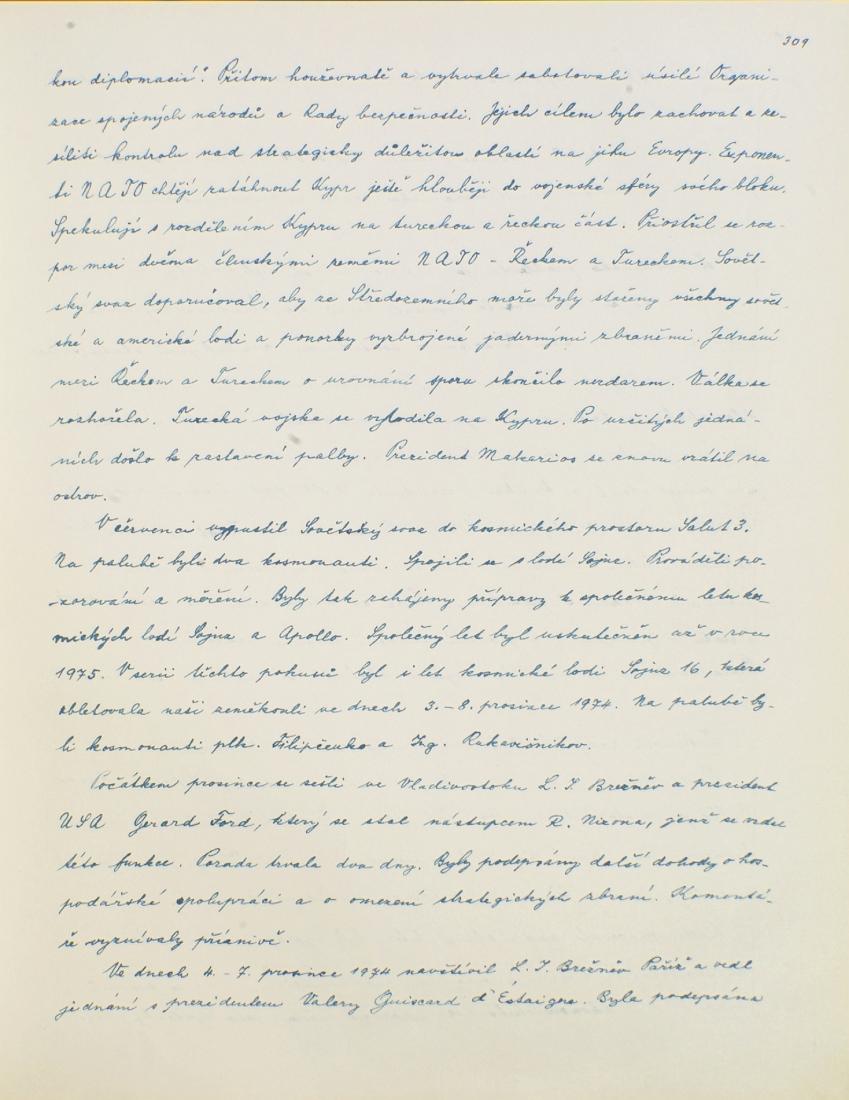 309
kou diplomacií". Přitom houževnatě a vytrvale sabotovali úsilí Organi-
zace spojených národů a Rady bezpečnosti. Jejich cílem bylo zachovat a ze-
síliti kontrolu nad strategicky důležitou oblastí na jihu Evropy. Exponen-
ti NATO chtějí zatáhnout Kypr ještě hlouběji do vojenské sféry svého bloku.
Spekulují s rozdělením Kypru na tureckou a řeckou část. Přiostřil se roz-
por mezi dvěma členskými zeměmi NATO - Řeckem a Tureckem. Sovět-
ský svaz doporučoval, aby ze Středozemního moře byly staženy všechny sovět
ské a americké lodi a ponorky vyzbrojené jadernými zbraněmi. Jednání
mezi Řeckem a Tureckem o urovnání sporu skončilo nezdarem. Válka se
rozhořela. Turecká vojska se vylodila na Kypru. Po určitých jedná-
ních došlo k zastavení palby. Prezident Makarios se znovu vrátil na
ostrov.
V červenci vypustil Sovětský svaz do kosmického prostoru Salut 3.
Na palubě byli dva kosmonauti. Spojili se s lodí Sojuz. Prováděli po-
zorování a měření. Byly tak zahájeny přípravy k společnému letu kos-
mických lodí Sojuz a Apollo. Společný let byl uskutečněn až v roce
1975. V serii těchto pokusů byl i let kosmické lodi Sojuz 16, která
obletovala naši zeměkouli ve dnech 3.-8. prosince 1974. Na palubě by-
li kosmonauti plk. Filipčenko a Ing. Rukavišnikov.
Počátkem prosince se sešli ve Vladivostoku L. I. Brežněv a prezident
USA Gerard Ford, který se stal nástupcem R. Nixona, jenž se vzdal
této funkce. Porada trvala dva dny. Byly podepsány další dohody o hos-
podářské spolupráci a o omezení strategických zbraní. Komentá-
ře vyznívaly příznivě.
Ve dnech 4. - 7. prosince 1974 navštívil L. I. Brežněv Paříž a vedl
jednání s prezidentem Valery Guiscard d'Éstaigne. Byla podepsána